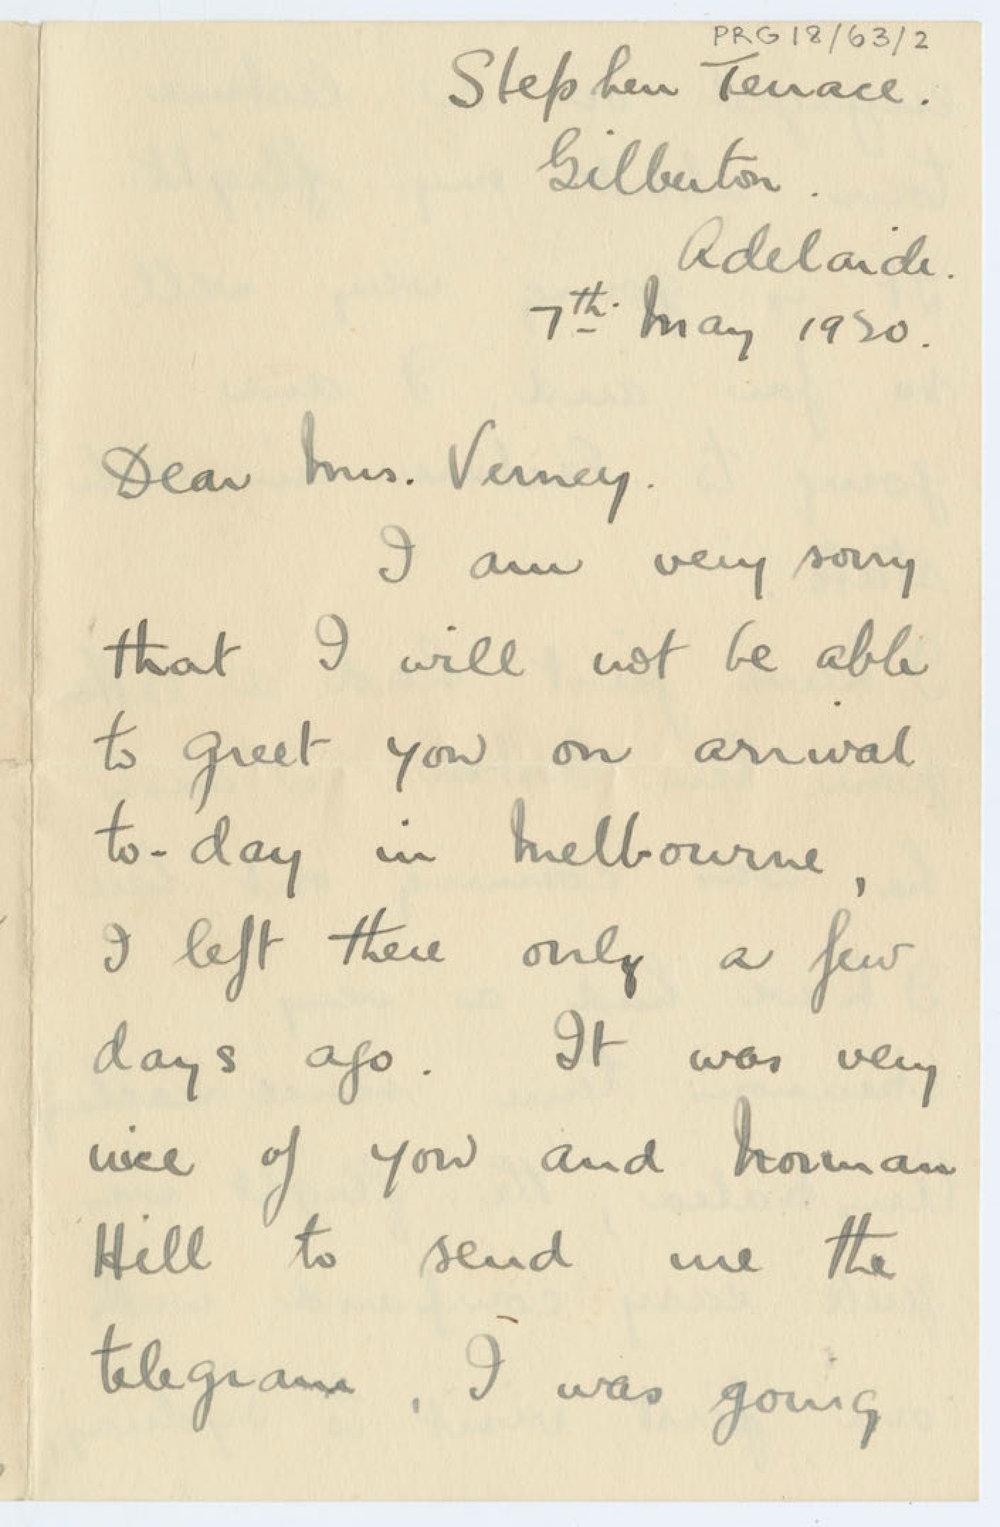 PRG 18/63/2
Stephen Terrace.
Gilberton.
Adelaide.
7th. May 1920.
Dear Mrs. Verney.
I am very sorry
that I will not be able
to greet you on arrival
to-day in Melbourne,
I left there only a few
days ago. It was very
nice of you and Norman
Hill to send me the
telegram, I was going